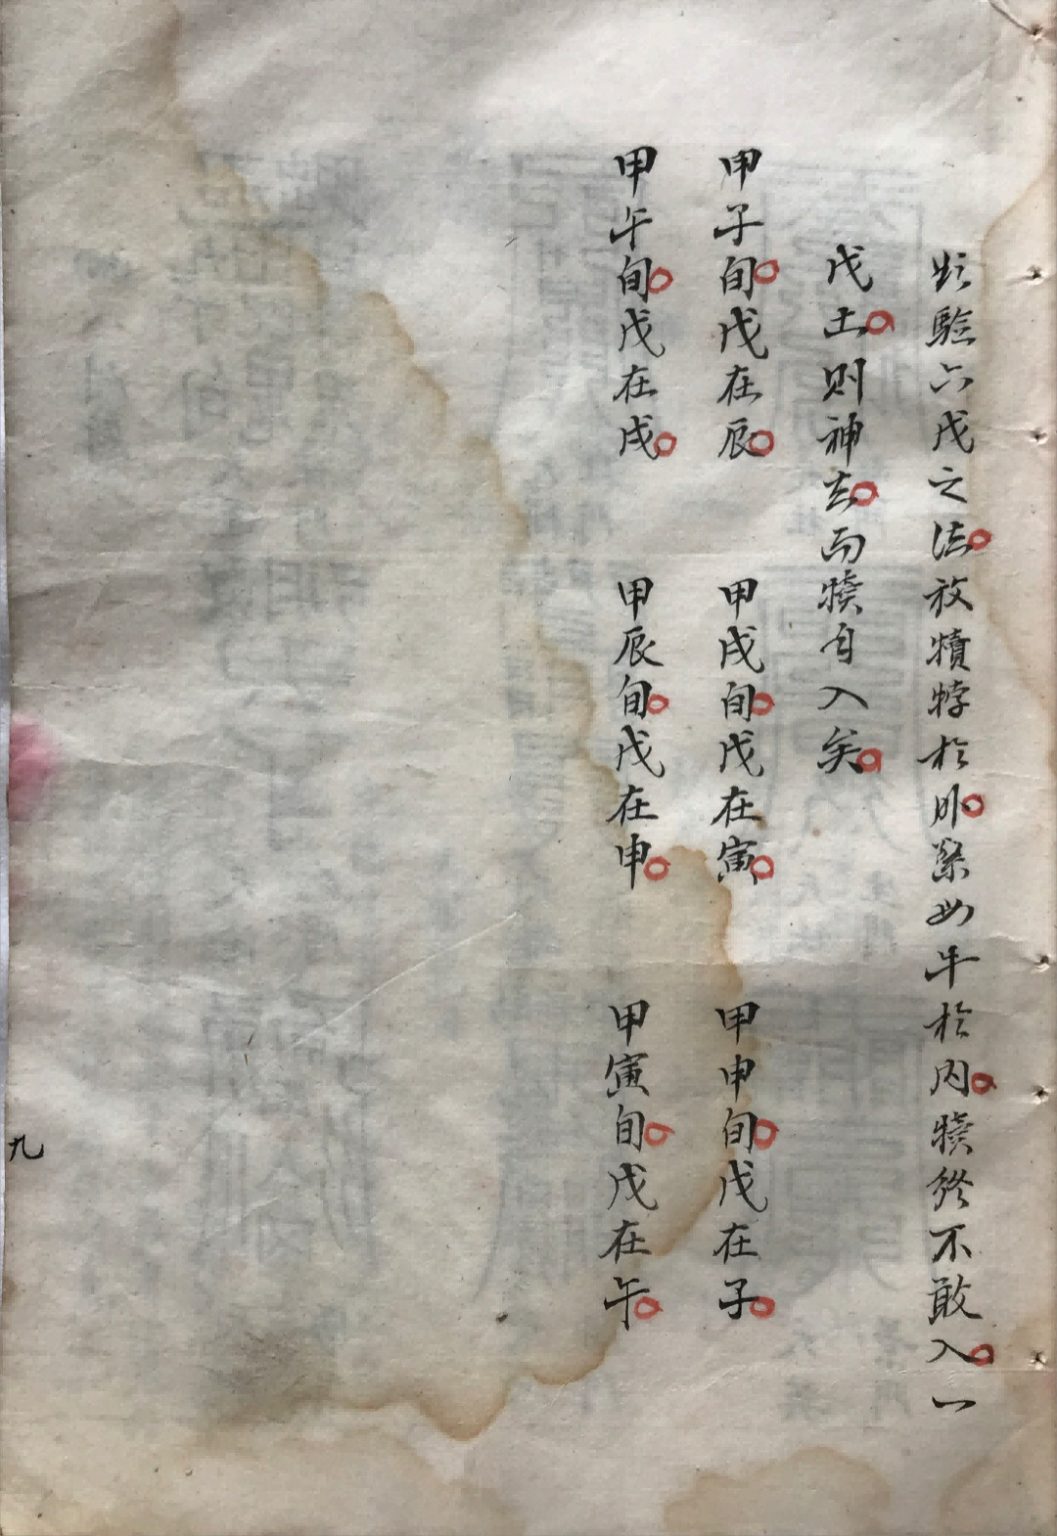 欲驗六戊之法放犢犊於外繫母牛於内犢終不敢入一
戊土则神去而犢自入矣
甲子旬戊在辰 甲戌旬戊在寅 甲申旬戊在子
甲午旬戊在戌 甲辰旬戊在申 甲寅旬戊在午
九